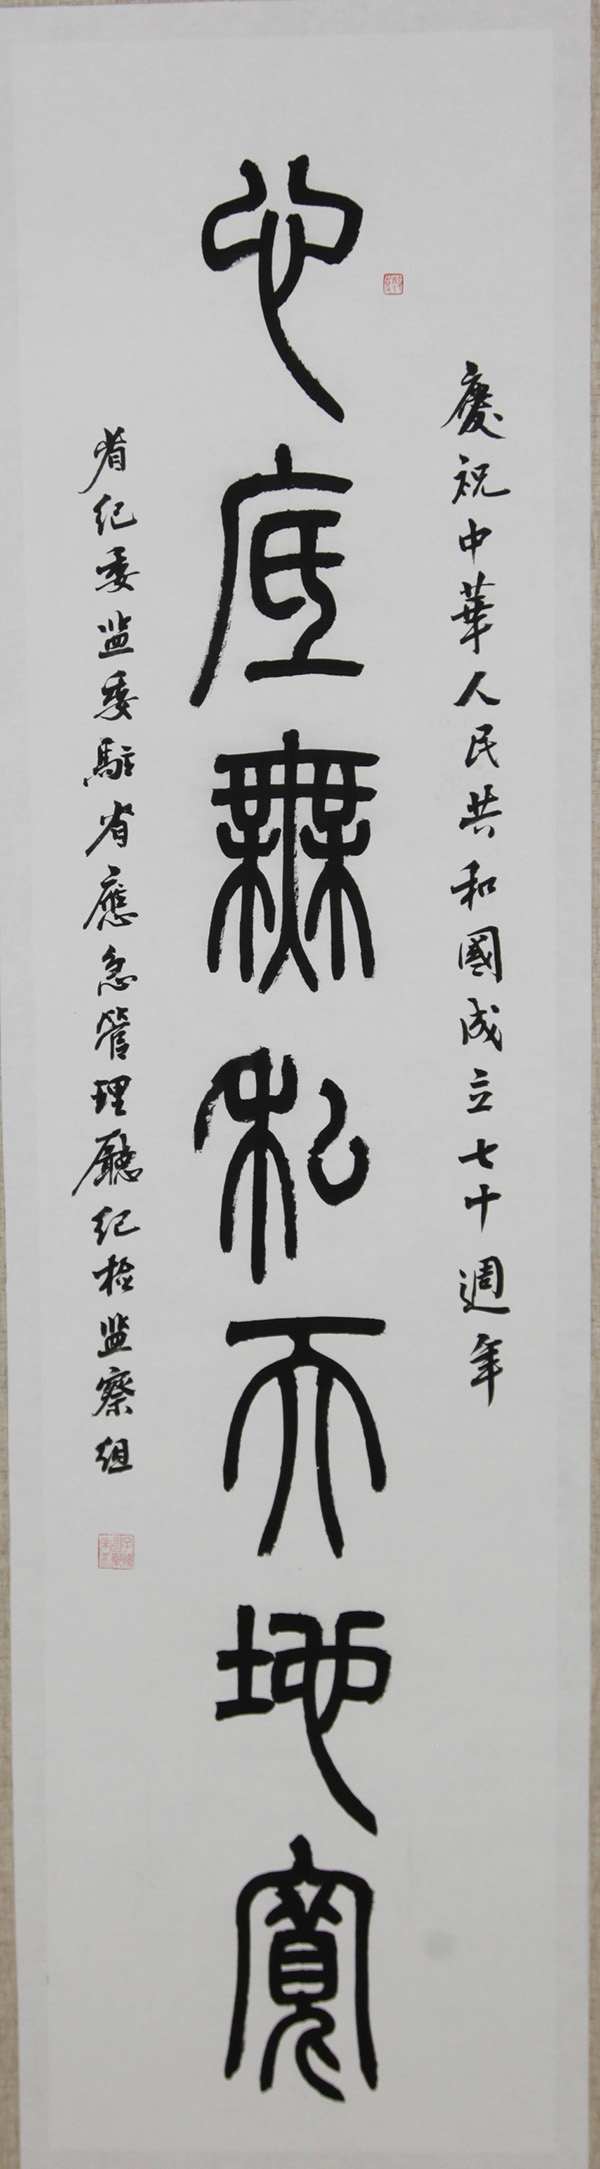 慶祝中華人民共和國成立七十週年
心底無私天地寬
省纪委监委駐省應急管理廳纪检监察组